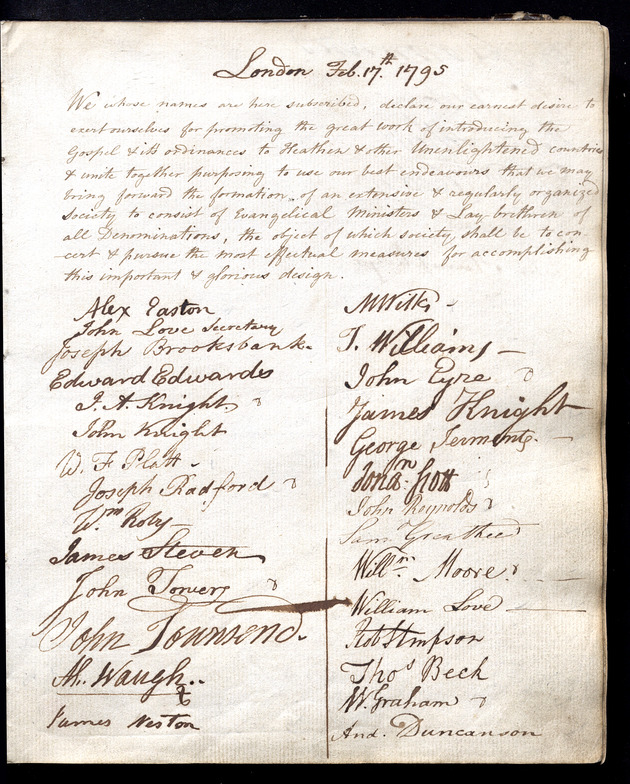 London Feb. 17.th 1795
We whose names are here subscribed, declare our earnest desire to
exert ourselves for promoting the great work of introducing the
Gospel & its ordinances to Heathen & other Unenlightened countries
& unite together purposing to use our best endeavours that we may
bring forward the formation of an extensive & regularly organized
society to consist of Evangelical Ministers & Lay-brethren of
all Denominations, the object of which society shall be to con-
cert & pursue the most effectual measures for accomplishing
this important & glorious design.
Alex Easton
John Love Secretary
Joseph Brooksbank.
Edward Edwards
J. A. Knight
John Knight
W. F. Platt
Joseph Radford
Wm. Roby
James Steven
John Towers
John Townsend.
A. Waugh.
James Weston
M Wilks
T. Williams
John Eyre
James Knight
George Jerment.
Jonan. Scott
John Reynolds
Sam. Greatheed
Willm. Moore
William Love
Rob Simpson
Thos Beck
W. Graham
And. Duncanson